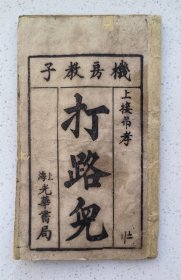 機房教子
上接弔孝
打路兒
上海光華書局